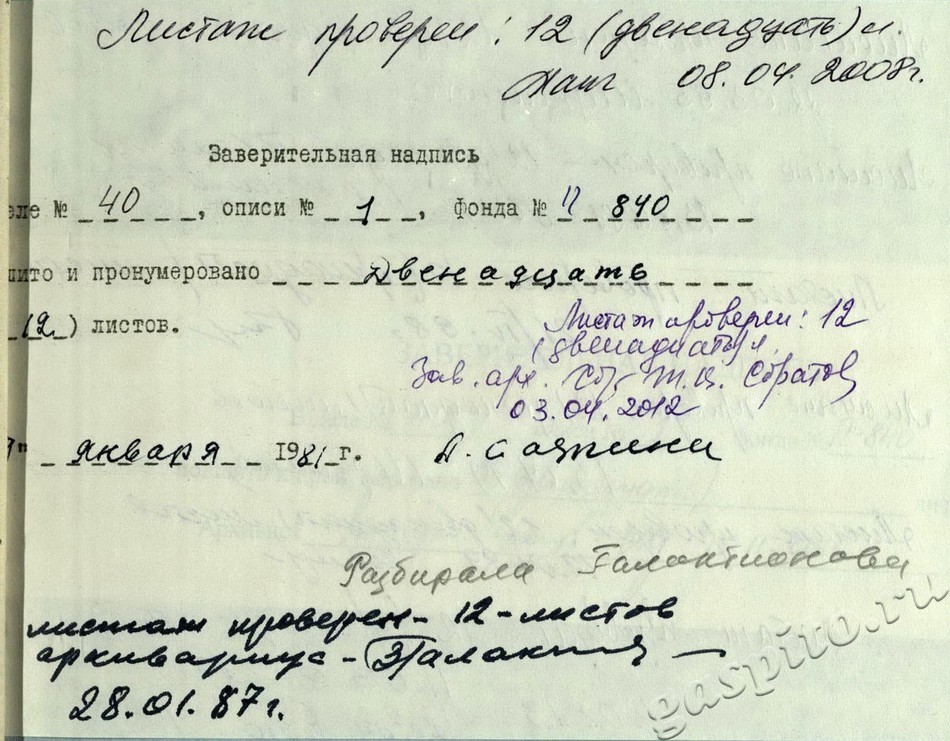 Листаж проверен: 12 (двенадцать) л.
08.04.2008г.
Заверительная надпись
еле № 40, описи № 1, фонда № П 840
шито и пронумеровано двенадцать
(12) листов.
Листаж проверен: 12
(двенадцать) л.
Зав. арх.
03.04.2012
января 1981 г.
Разбирала Галактионова
листаж проверен - 12 - листов
архивариус -
28.01.87г.
gaspito.ru